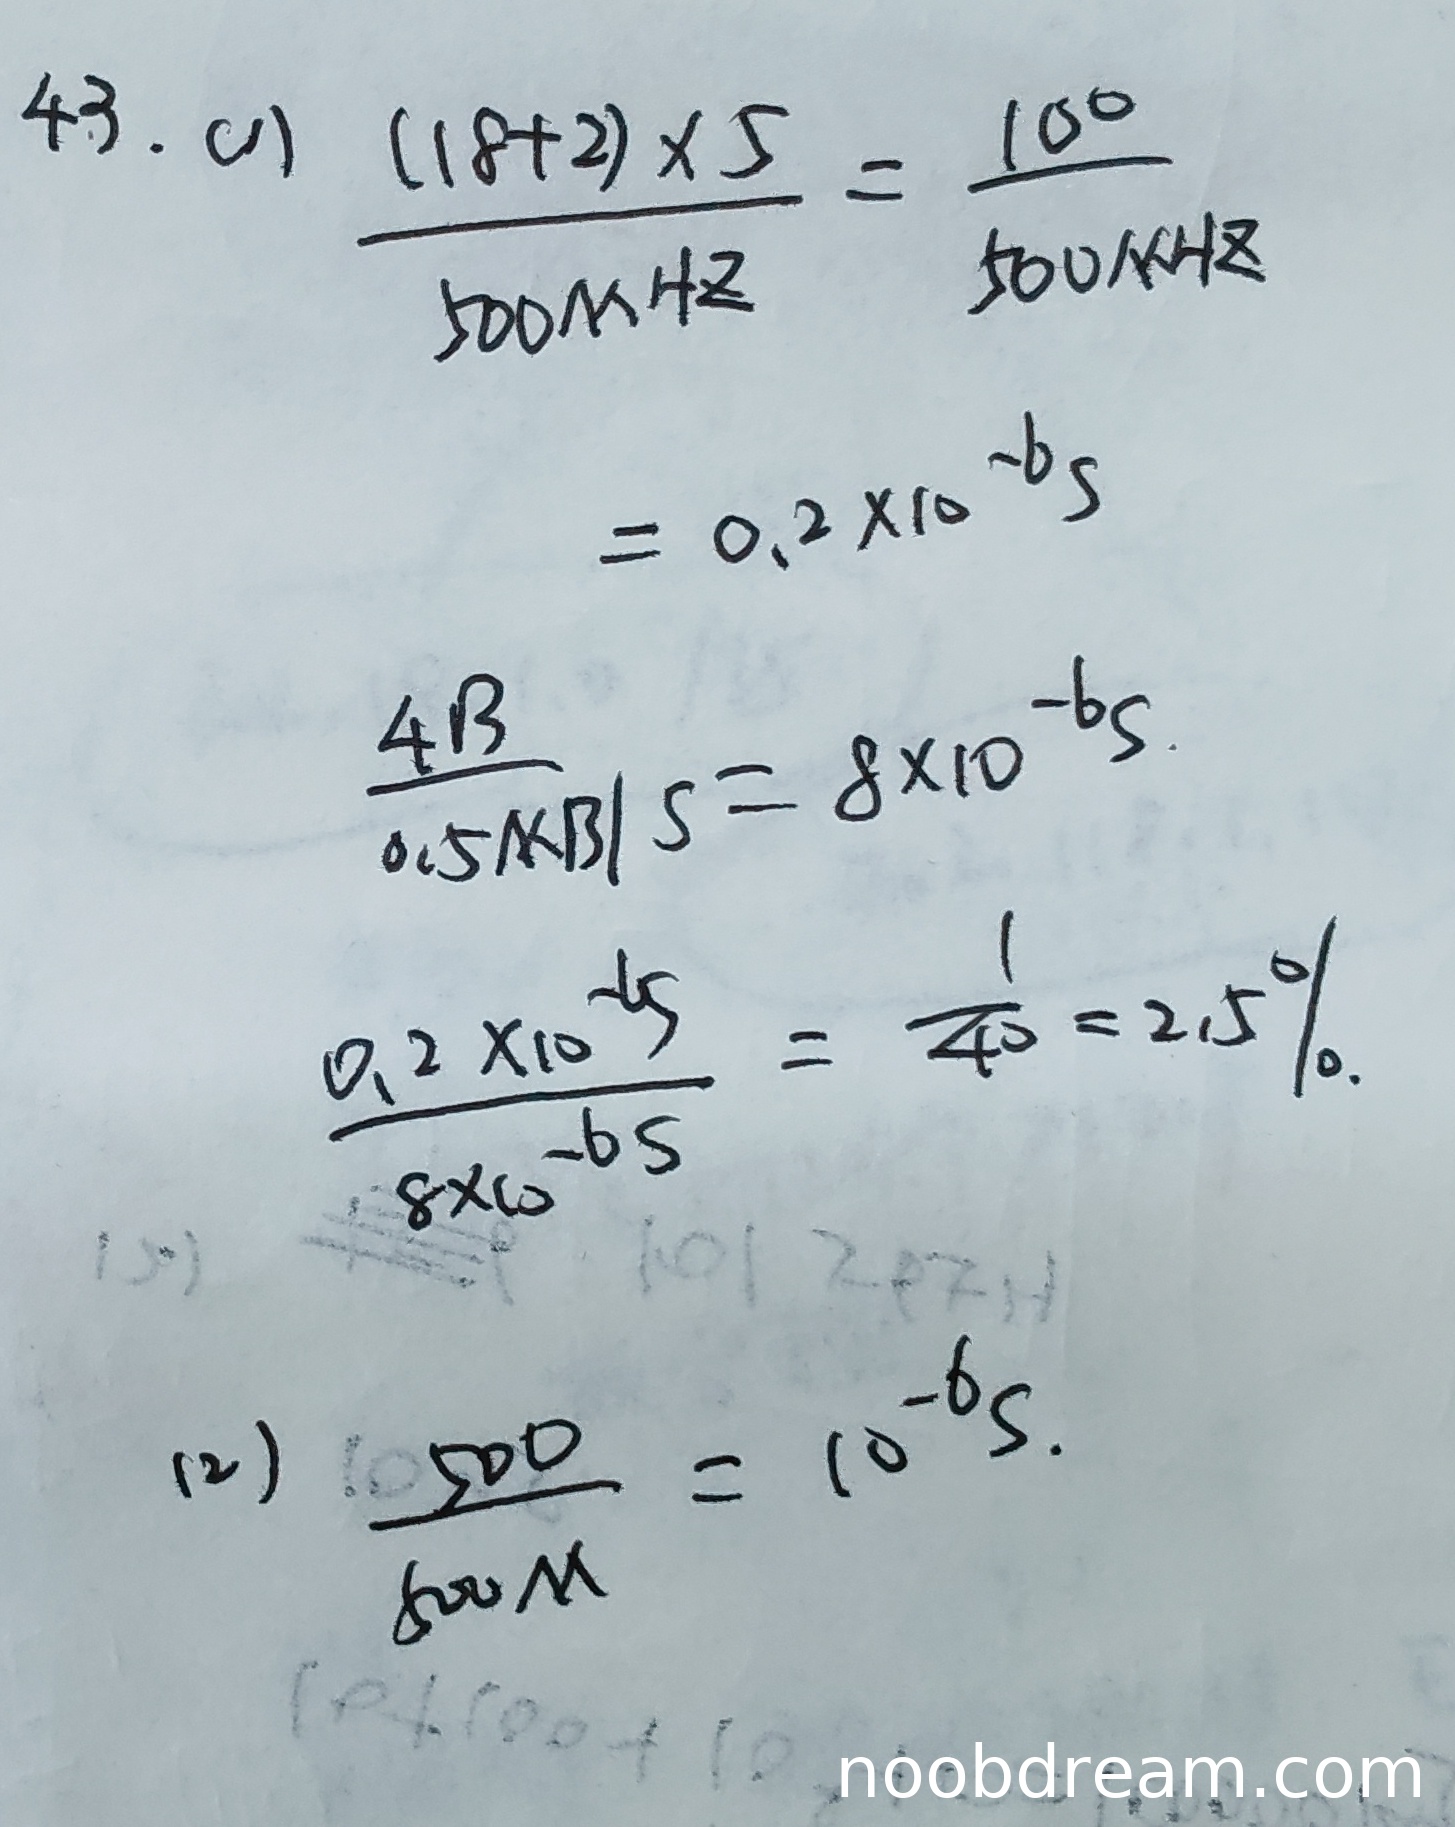 43. (1) (18+2)×5 / 500MHZ = 100 / 500MHZ
= 0.2×10^-6 s
4B / 0.5MB/S = 8×10^-6 s.
0.2×10^-6 s / 8×10^-6 s = 1/40 = 2.5%.
(2) 500 / 500M = 10^-6 s.
noobdream.com